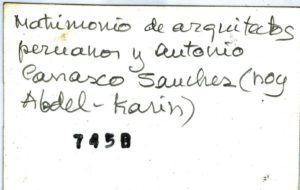 Matrimonio de arquitectos
peruanos y Antonio
Carrasco Sanchez (hoy
Abdel-Karin)
7458